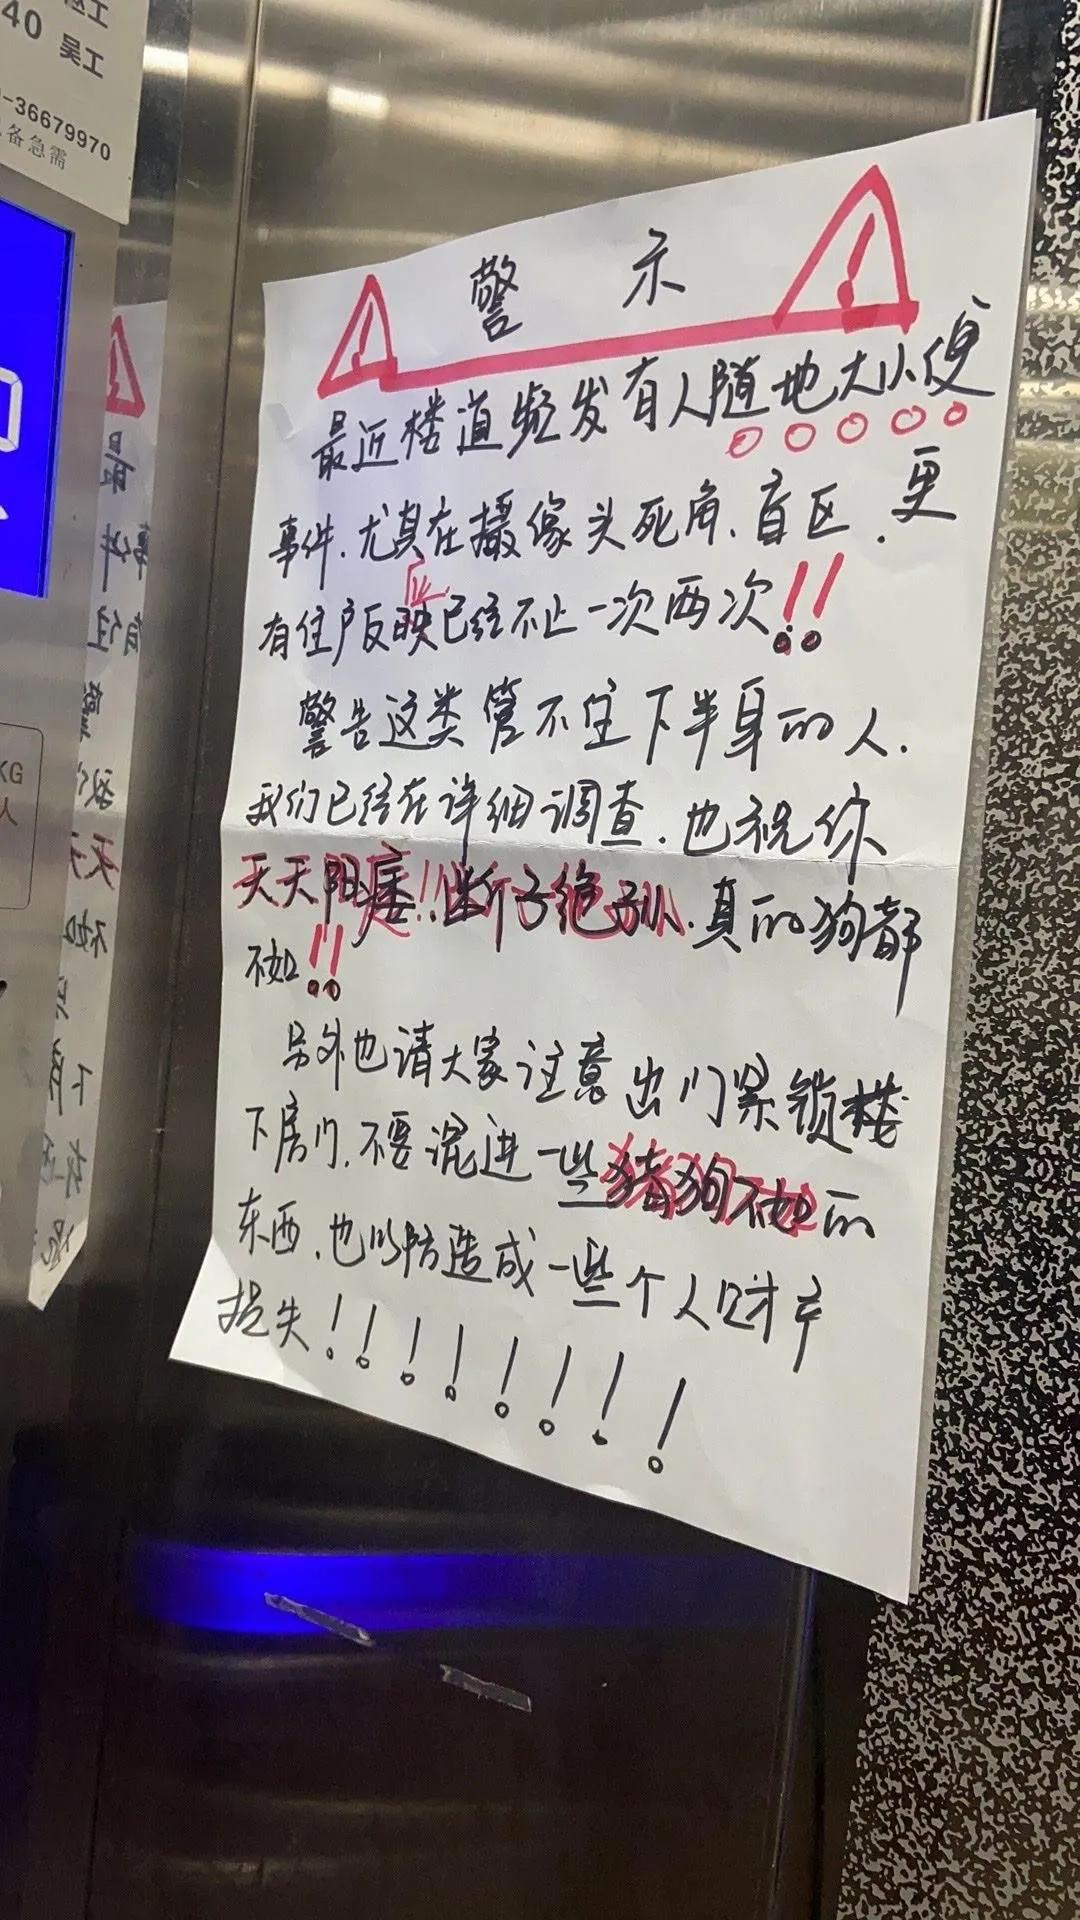 40 吴工
-36679970
备急需
KG
人
警 示
最近楼道频发有人随地大小便
事件.尤其在摄像头死角.盲区.更
应
有住户反映已经不止一次两次!!
警告这类管不住下半身的人.
我们已经在详细调查.也祝你
天天阳痿!!断子绝孙.真的狗都
不如!!
另外也请大家注意出门紧锁楼
下房门.不要混进一些猪狗不如的
东西.也以防造成一些个人财产
损失!!!!!!!!